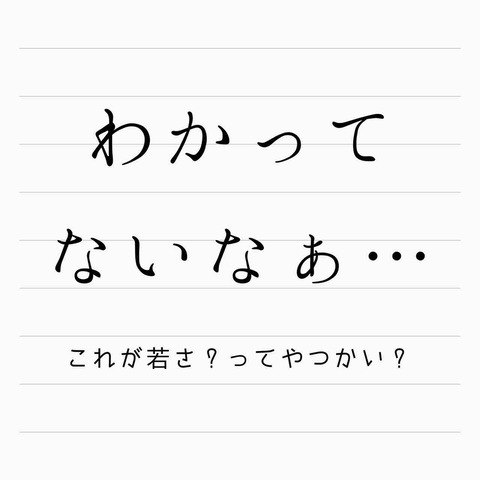 わかって
ないなぁ…
これが若さ？ってやつかい？